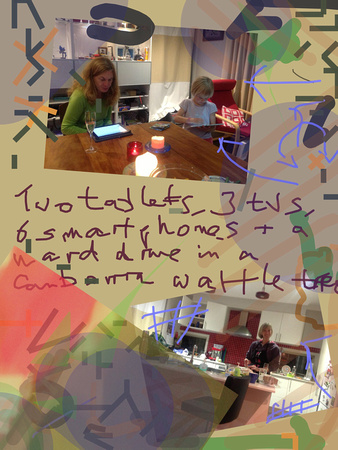 Two tablets, 3 tvs,
6 smartphones + a
hard drive in a
Canberra wattle tree